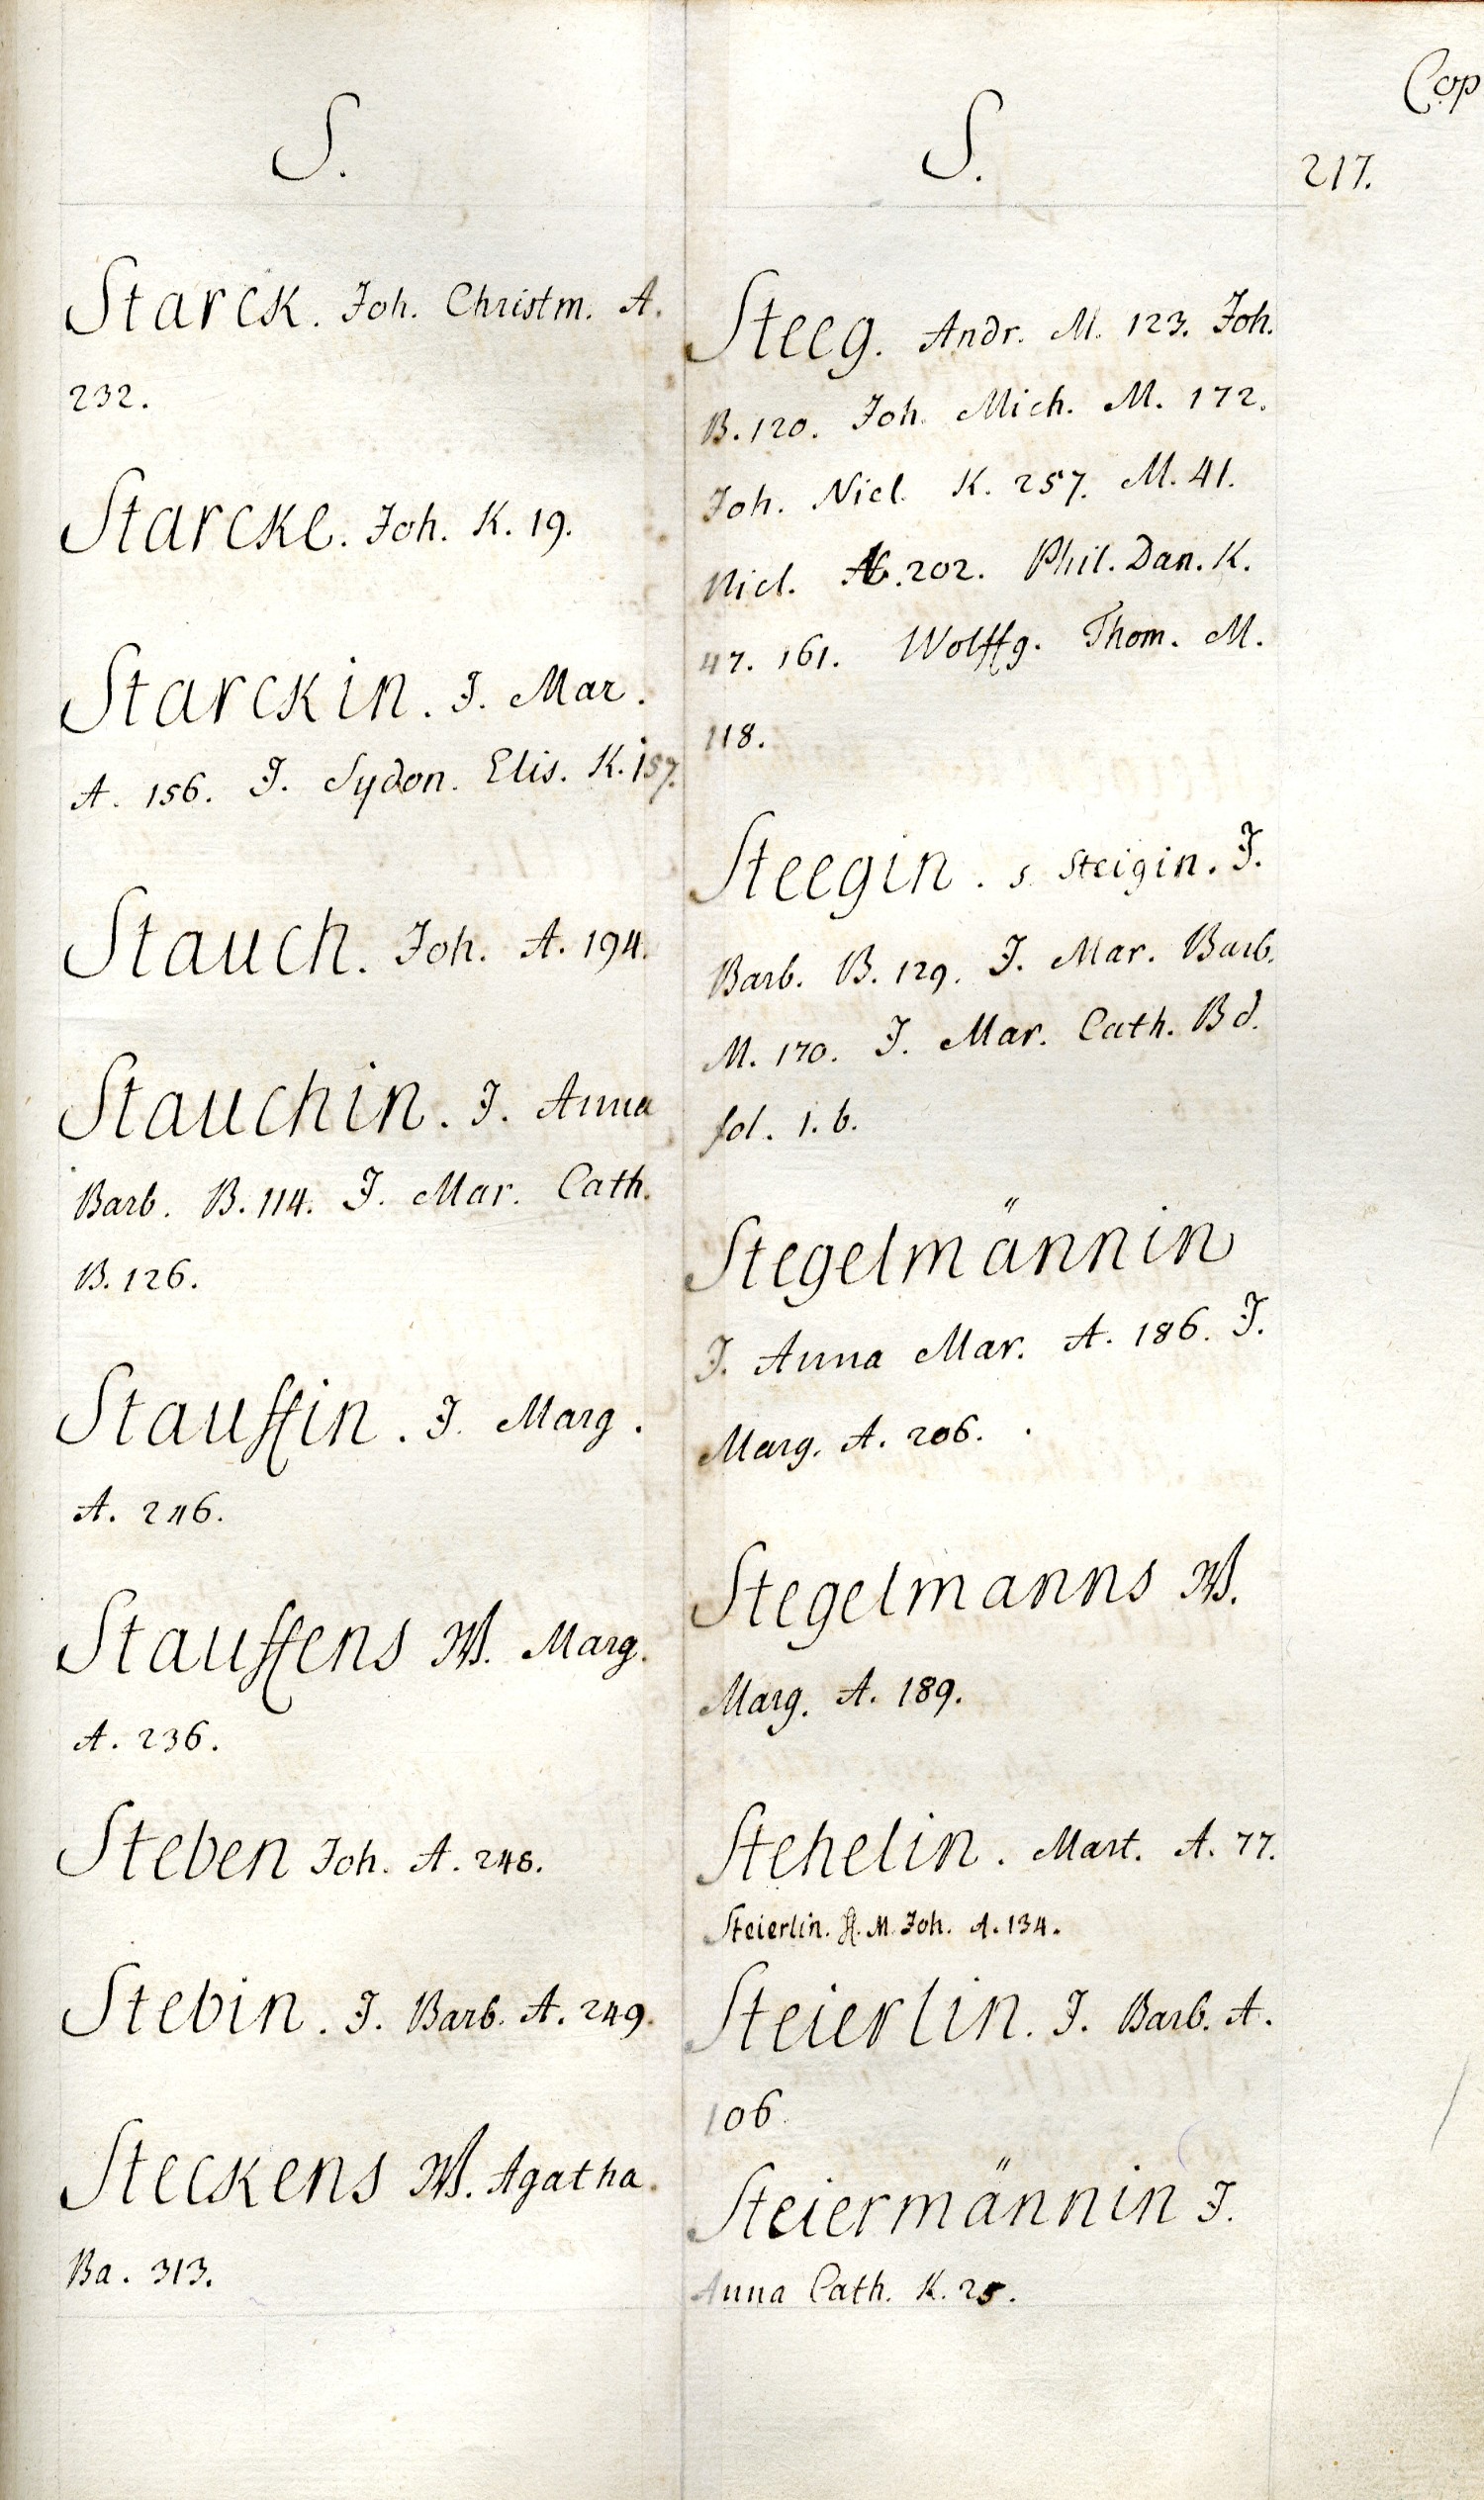 S.
Starck. Joh. Christm. A.
232.
Starcke. Joh. K. 19.
Starckin. J. Mar.
A. 156. J. Sydon. Elis. K. 157.
Stauch. Joh. A. 194.
Stauchin. J. Anna
Barb. B. 114. J. Mar. Cath.
B. 126.
Stauffin. J. Marg.
A. 246.
Stauffens W. Marg.
A. 236.
Steben Joh. A. 248.
Stebin. J. Barb. A. 249.
Steckens W. Agatha.
Ba. 313.
S.
Steeg. Andr. M. 123. Joh.
B. 120. Joh. Mich. M. 172.
Joh. Nicl. K. 257. M. 41.
Nicl. 202. Phil. Dan. K.
47. 161. Wolffg. Thom. M.
118.
Steegin. s. Steigin. J.
Barb. B. 129. J. Mar. Barb.
M. 170. J. Mar. Cath. Bd.
fol. 1. b.
Stegelmännin
J. Anna Mar. A. 186. J.
Marg. A. 206.
Stegelmanns W.
Marg. A. 189.
Stehelin. Mart. A. 77.
Steierlin. M. Joh. A. 134.
Steierlin. J. Barb. A.
106.
Steiermännin J.
Anna Cath. K. 25.
Cop
217.